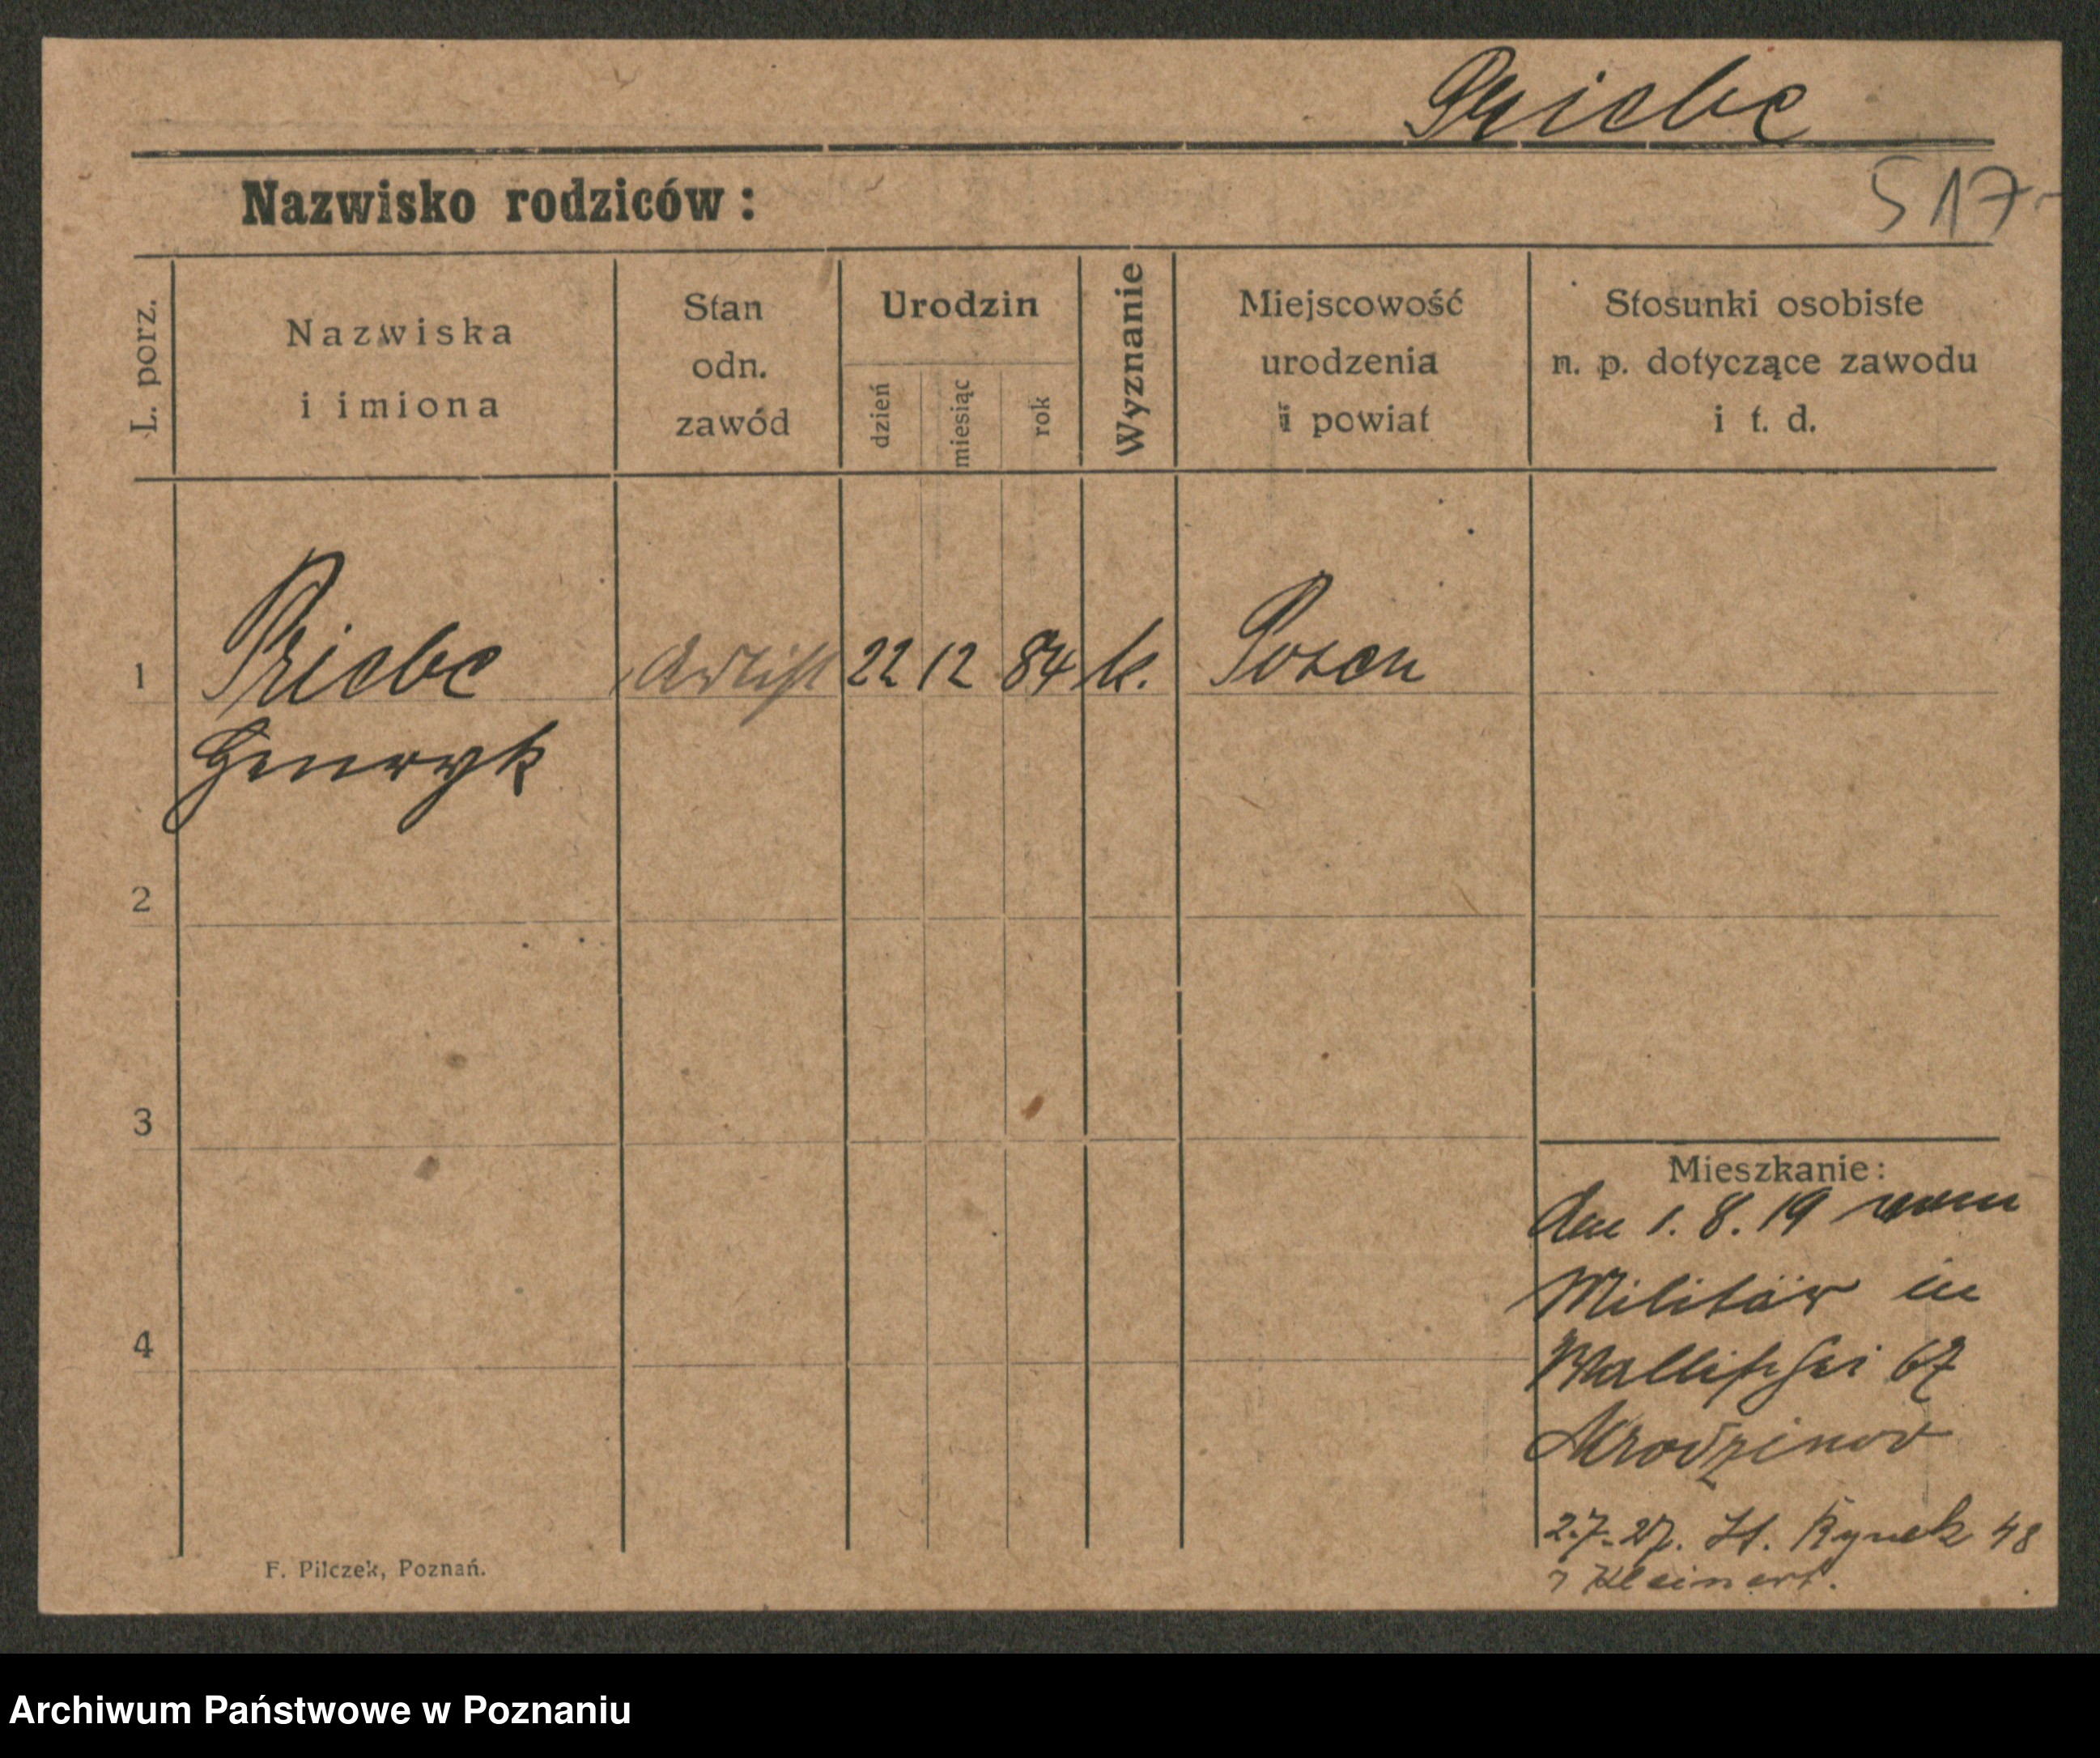 Priebe
Nazwisko rodziców:
517-
L. porz.
Nazwiska
i imiona
Stan
odn.
zawód
Urodzin
dzień
miesiąc
rok
Wyznanie
Miejscowość
urodzenia
i powiat
Stosunki osobiste
n. p. dotyczące zawodu
i t. d.
1
Priebe Artist 22 12 84 k. Posen
Henryk
2
3
4
Mieszkanie:
Am 1. 8. 19 vom
Militär in
Wallischei 67
Mrodzinov
2.7.27. St. Rynek 48
Kleinert.
F. Pilczek, Poznań.
Archiwum Państwowe w Poznaniu